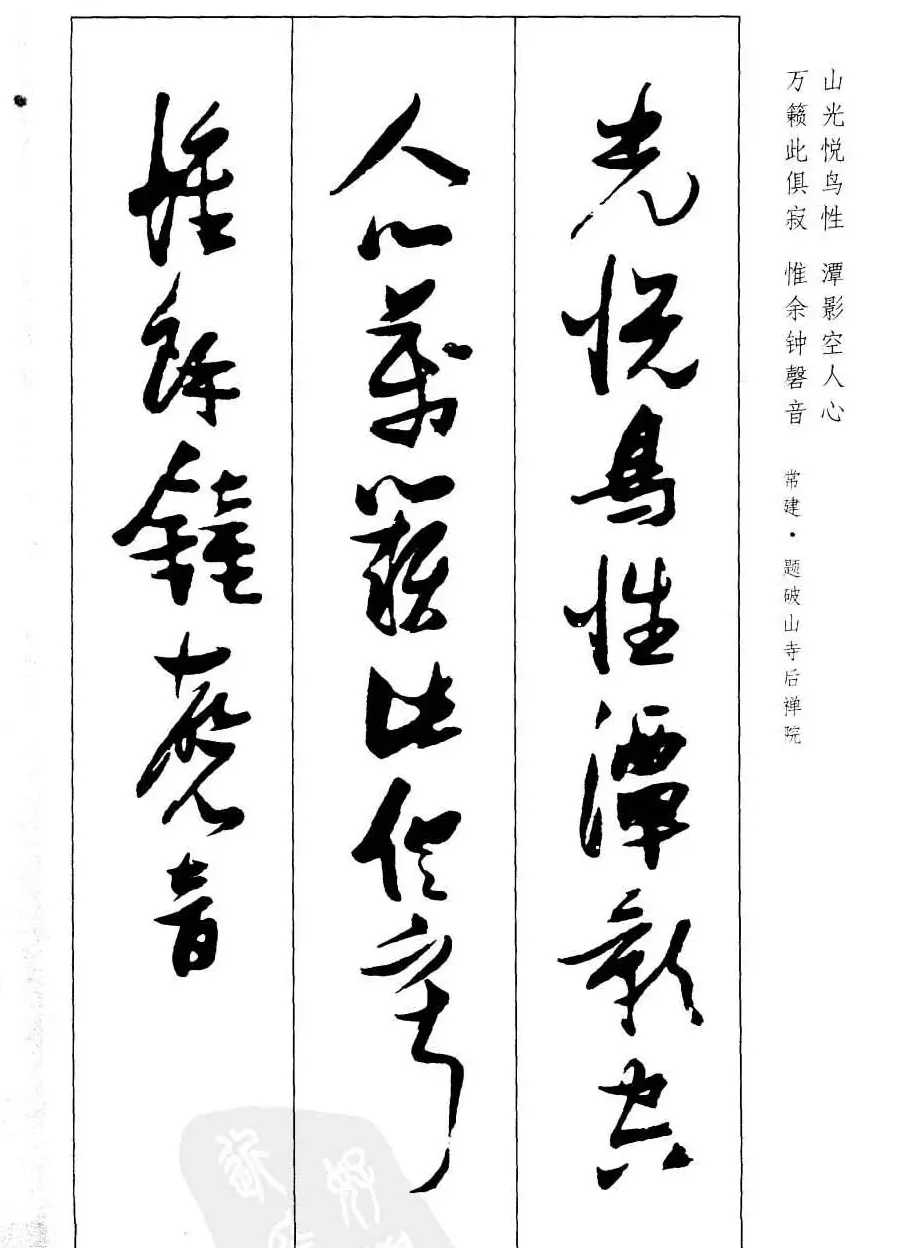 山光悦鸟性 潭影空人心
万籁此俱寂 惟余钟磬音
常建·题破山寺后禅院
光悦鳥性潭影空
人心萬籟此俱寂
惟餘鐘磬音